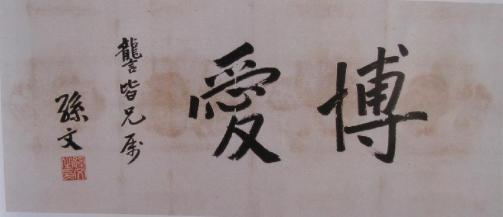 博愛
讋皆兄屬
孫文